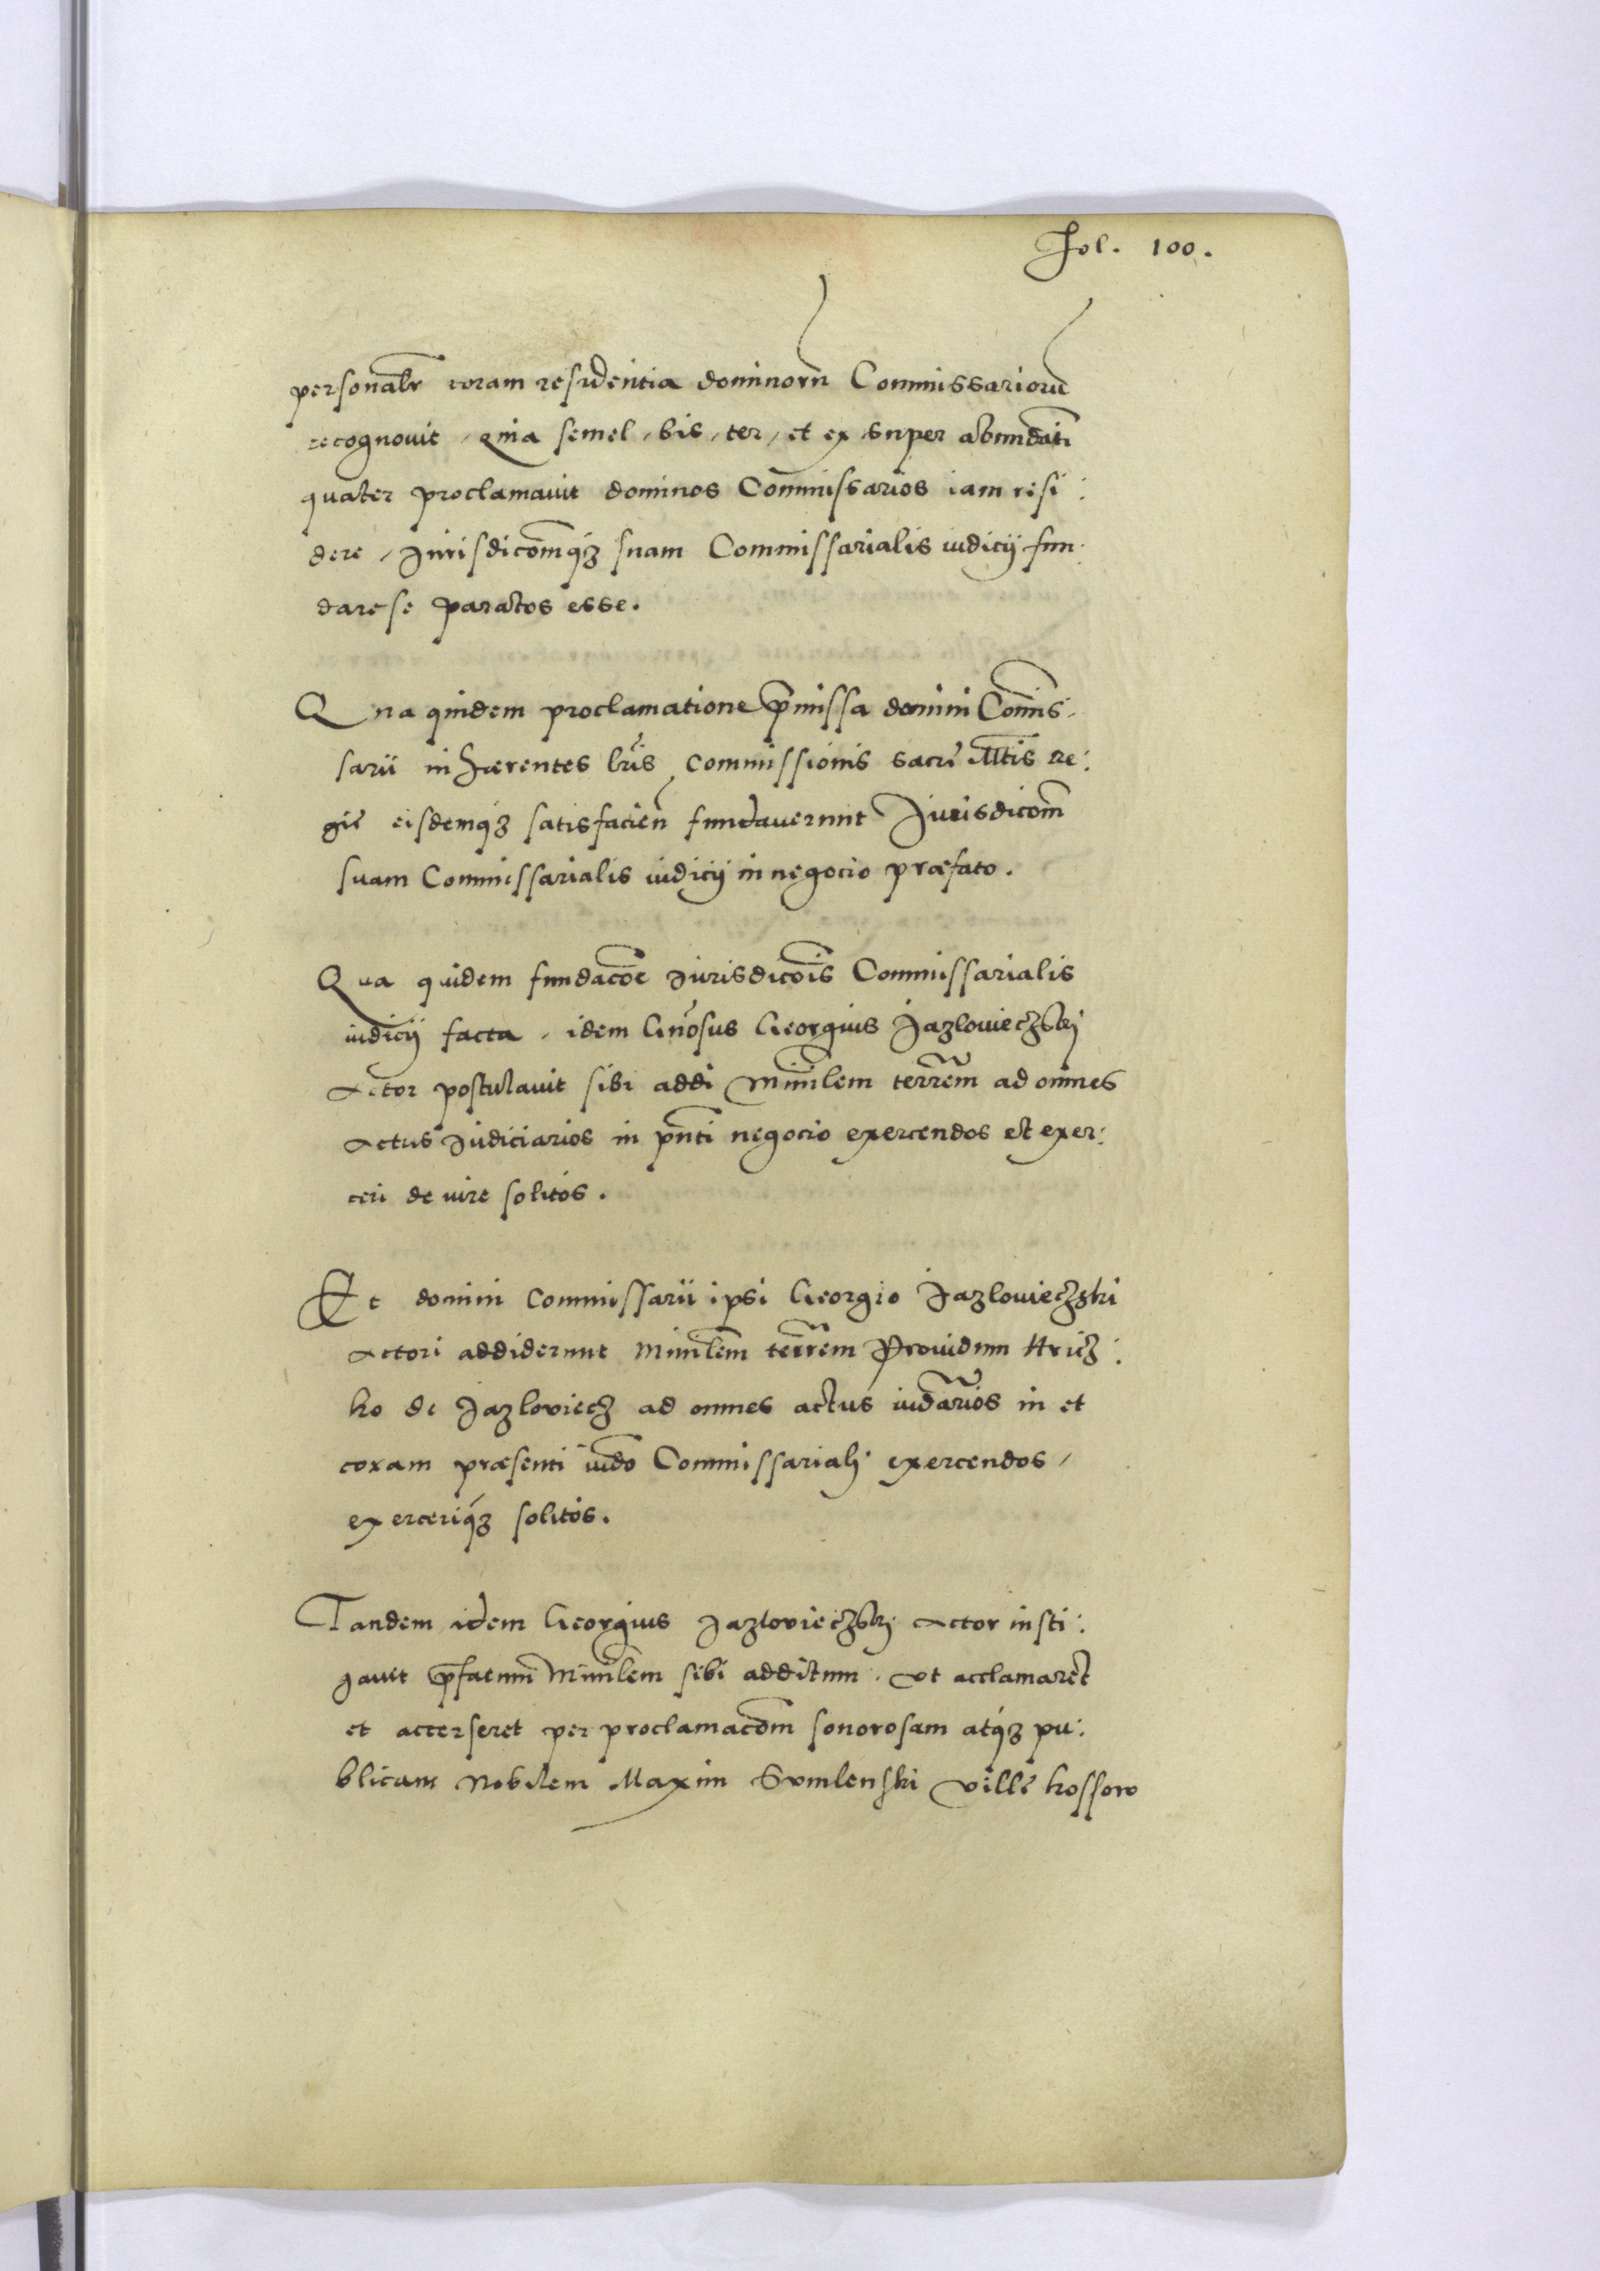 Fol. 100.
personalr coram residentia dominoru Commissarioru
recognovit, Quia semel, bis, ter, et ex super abundati
quater proclamavit dominos Commissarios iam resi:
dere, Jurisdicomqz suam Commissarialis iudicij fun:
dare se paratos esse.
Qua quidem proclamatione pmissa domini Comis:
sarii inhærentes lris commissionis sacre Mtis Re:
gie eisdemqz satisfacien fundaverunt Jurisdicom
suam Commissarialis iudicij in negocio præfato.
Qua quidem fundacõe Jurisdicois Commissarialis
iudicij facta, idem Gnosus Georgius Jazlowieczski
Actor postulavit sibi addi Minilem terrem ad omnes
actus Judiciarios in pnti negocio exercendos et exer:
ceri de iure solitos.
Et domini Commissarii ipsi Georgio Jazlowieczski
Actori addiderunt Minilem terrem Providum Hricz:
ko de Jazloviecz ad omnes actus iudarios in et
coram præsenti iudo Commissariali exercendos,
exerceriqz solitos.
Tandem idem Georgius Jazlovieczski Actor insti:
gavit pfatum Minilem sibi additum, vt acclamaret
et accerseret per proclamacom sonorosam atqz pu:
blicam Nobilem Maxim Svmlenski ville Kossow